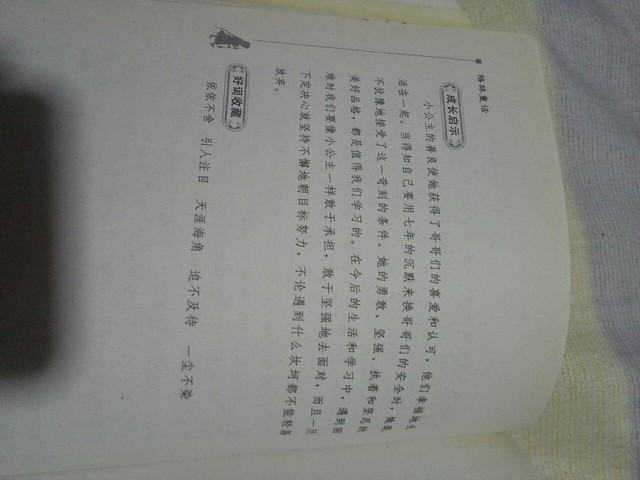 格林童话
成长启示
小公主的善良使她获得了哥哥们的喜爱和认可，他们幸福地生
活在一起。当得知自己要用七年的沉默来换哥哥们的安全时，她毫
不犹豫地接受了这一苛刻的条件。她的勇敢、坚强、执着和坚忍的
美好品格，都是值得我们学习的。在今后的生活和学习中，遇到困
难时我们要像小公主一样敢于承担，敢于坚强地去面对，而且一旦
下定决心就坚持不懈地朝目标努力，不论遇到什么坎坷都不能轻易
放弃。
好词收藏
依依不舍 引人注目 天涯海角 迫不及待 一尘不染